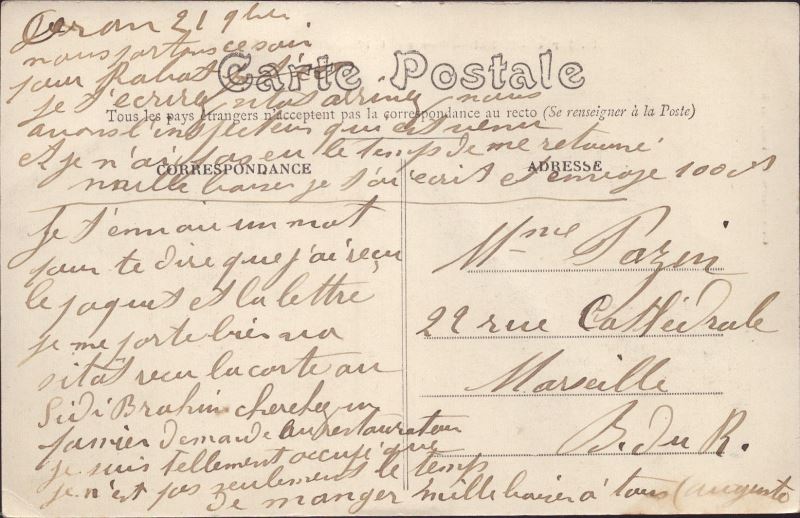 Oran 21 9bre
nous partons ce soir
pour Rabat
Carte Postale
je t'écrirez
nous
Tous les pays étrangers n'acceptent pas la correspondance au recto (Se renseigner à la Poste)
avons l'inspecteur qui est venu
et je n'ai pas eu le temps de me retourné
CORRESPONDANCE
ADRESSE
mille baiser je t'ai écrit et envoie 100
Je t'envoi un mot
pour te dire que j'ai reçu
le paquet et la lettre
je me porte bien
sitôt reçu la carte au
Sidi Brahim cherchez un
panier demande au restaurateur
je suis tellement occupé que
je n'est pas seulement le temps
de manger mille baiser à tous
Mme Pazin
22 rue Cathédrale
Marseille
B. du R.